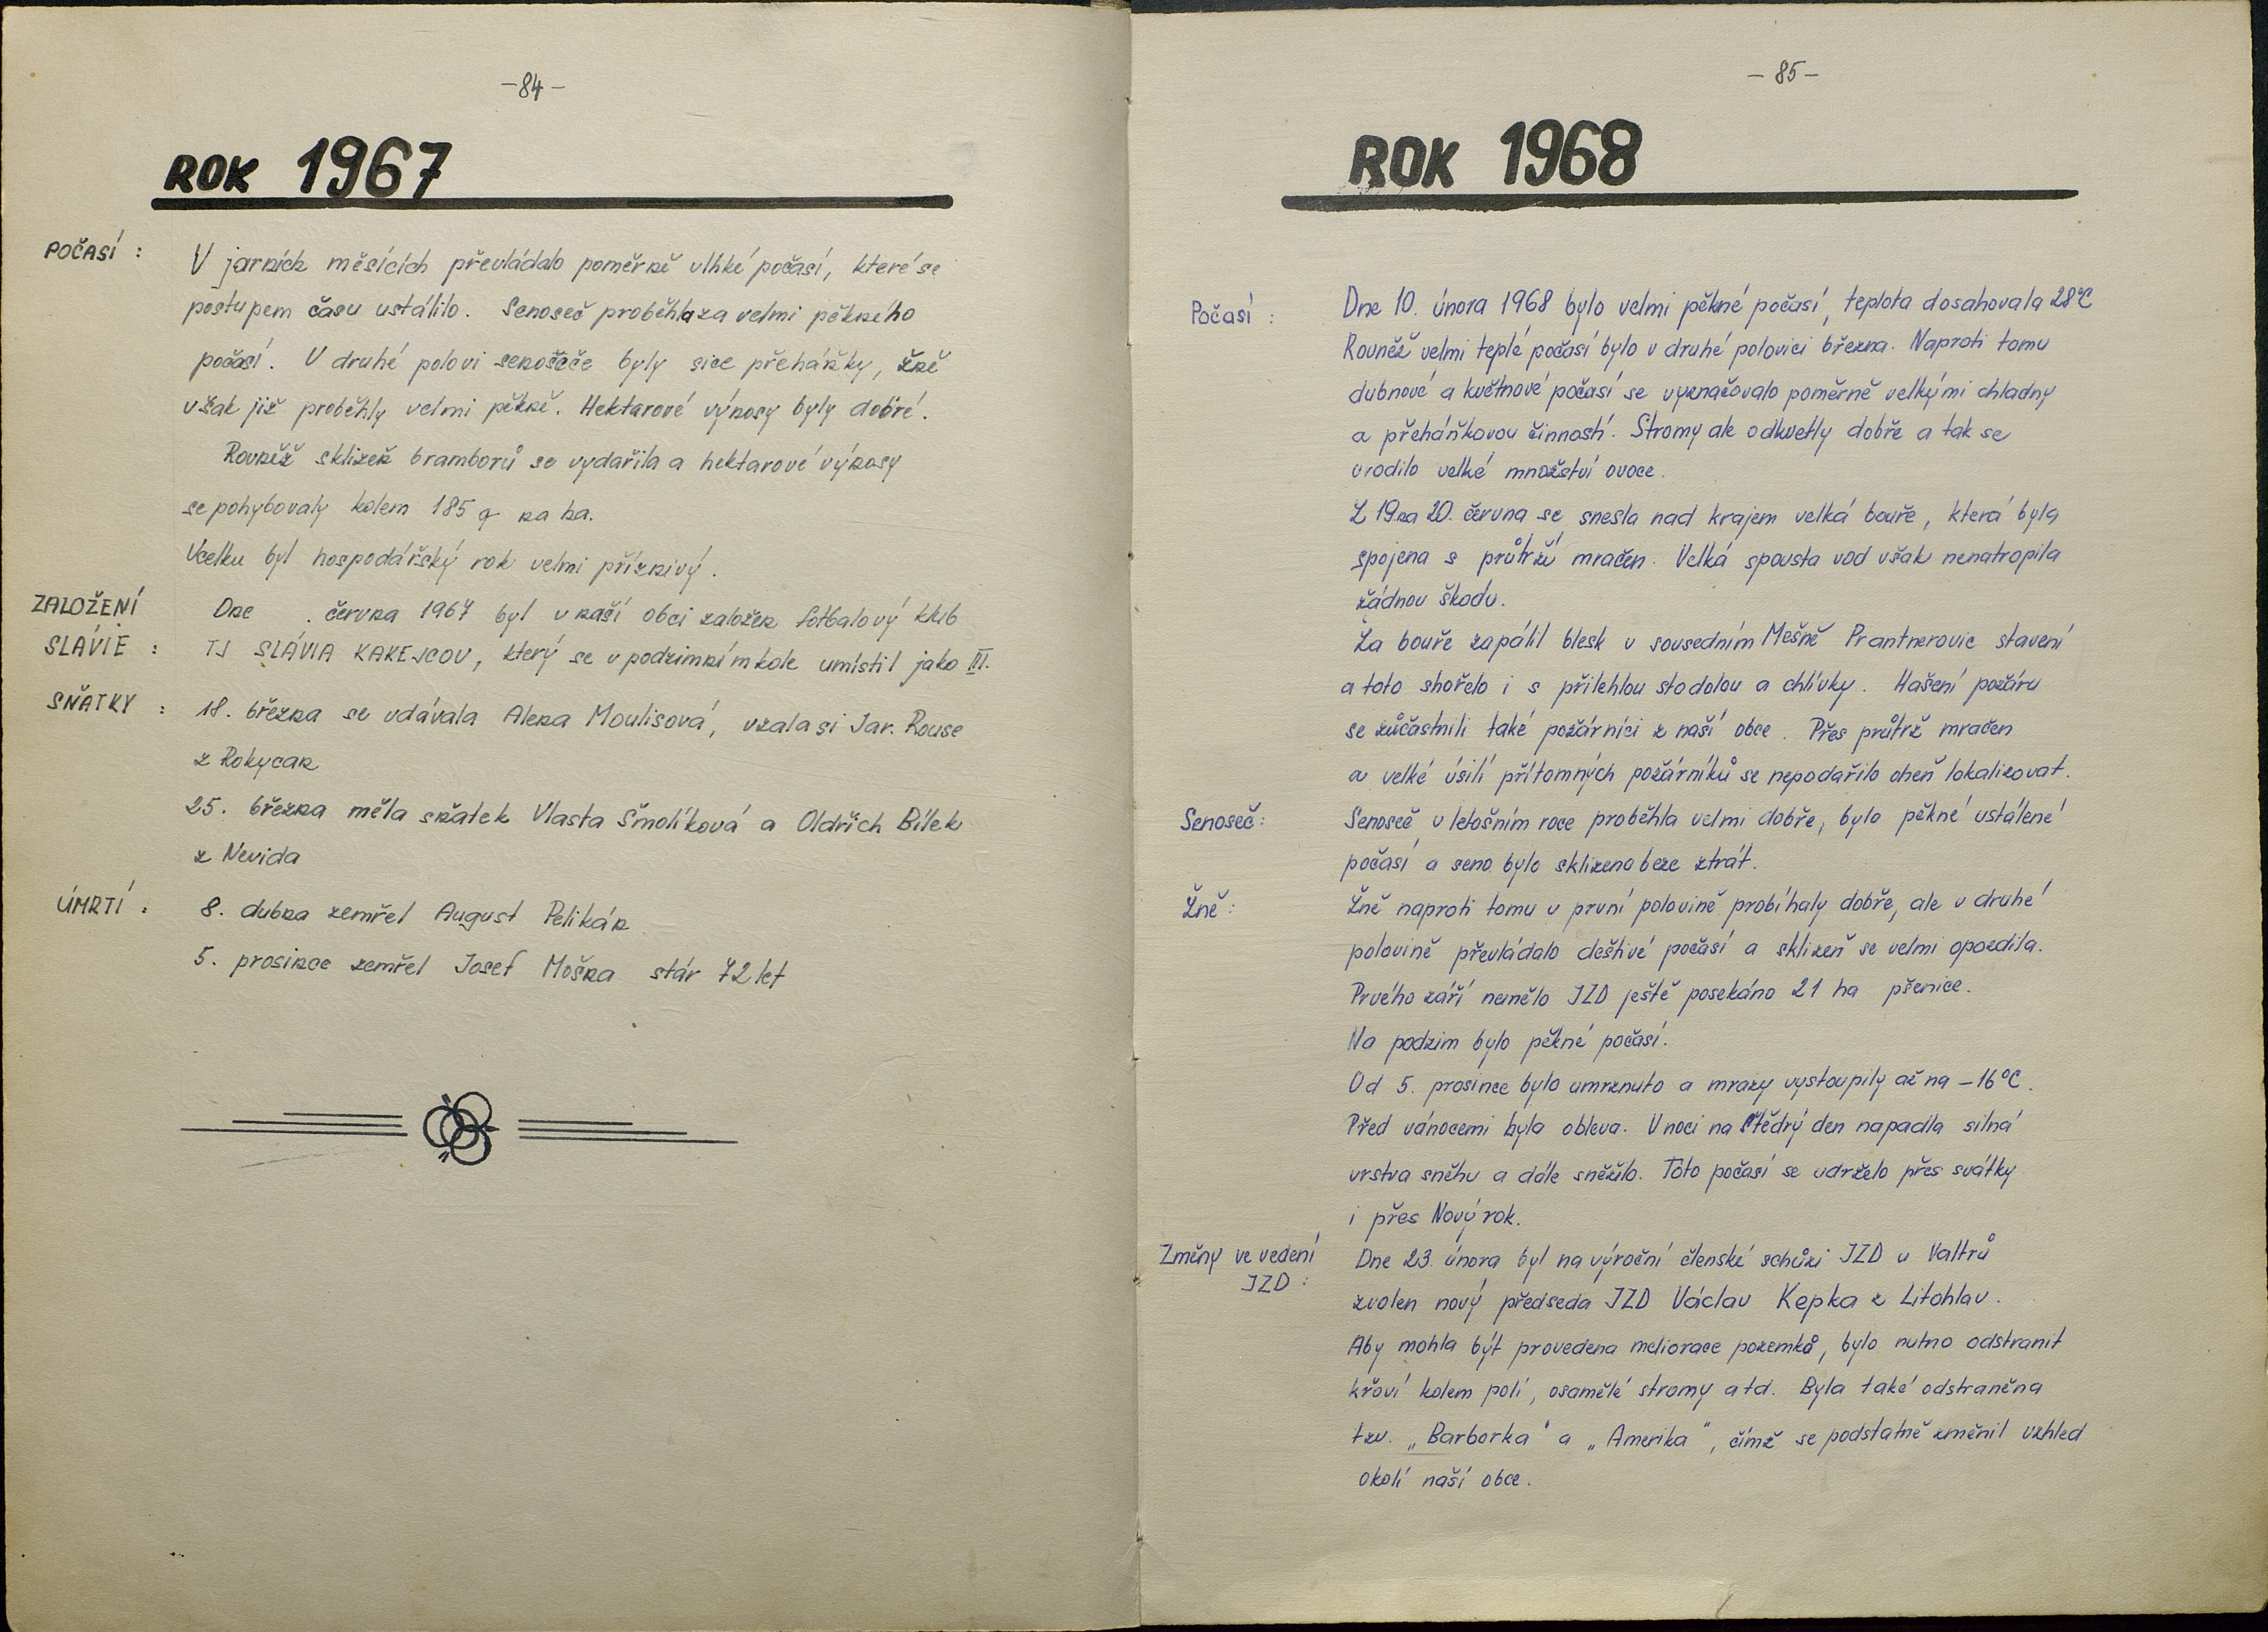 -84-
ROK 1967
POČASÍ : V jarních měsících převládalo poměrně vlhké počasí, které se
postupem času ustálilo. Senoseč proběhla za velmi pěkného
počasí. V druhé polovi senošeče byly sice přeháňky, žně
však již proběhly velmi pěkně. Hektarové výnosy byly dobré.
Rovněž sklizeň bramborů se vydařila a hektarové výnosy
se pohybovaly kolem 185 q na ha.
Vcelku byl hospodářský rok velmi příznivý.
ZALOŽENÍ Dne . června 1967 byl v naší obci založen fotbalový klub
SLÁVIE : TJ SLÁVIA KAKEJCOV, který se v podzimním kole umístil jako III.
SŇATKY : 18. března se vdávala Alena Moulisová, vzala si Jar. Rouse
z Rokycan
25. března měla sňatek Vlasta Šmolíková a Oldřich Bílek
z Nevida
ÚMRTÍ : 8. dubna zemřel August Pelikán
5. prosince zemřel Josef Mošna stár 72 let
-85-
ROK 1968
Počasí : Dne 10. února 1968 bylo velmi pěkné počasí, teplota dosahovala 28°C
Rovněž velmi teplé počasí bylo v druhé polovici března. Naproti tomu
dubnové a květnové počasí se vyznačovalo poměrně velkými chladny
a přeháňkovou činností. Stromy ale odkvetly dobře a tak se
urodilo velké množství ovoce.
Z 19. na 20. června se snesla nad krajem velká bouře, která byla
spojena s průtrží mračen. Velká spousta vod však nenatropila
žádnou škodu.
Za bouře zapálil blesk v sousedním Mešně Prantnerovic stavení
a toto shořelo i s přilehlou stodolou a chlívky. Hašení požáru
se zůčastnili také požárníci z naší obce. Přes průtrž mračen
a velké úsilí přítomných požárníků se nepodařilo oheň lokalizovat.
Senoseč : Senoseč v letošním roce proběhla velmi dobře, bylo pěkné ustálené
počasí a seno bylo sklizeno beze ztrát.
Žně : Žně naproti tomu v první polovině probíhaly dobře, ale v druhé
polovině převládalo deštivé počasí a sklizeň se velmi opozdila.
Prvého září nemělo JZD ještě posekáno 21 ha pšenice.
Na podzim bylo pěkné počasí.
Od 5. prosince bylo umrznuto a mrazy vystoupily až na -16°C.
Před vánocemi byla obleva. V noci na Štědrý den napadla silná
vrstva sněhu a dále sněžilo. Toto počasí se udrželo přes svátky
i přes Nový rok.
Změny ve vedení Dne 23. února byl na výroční členské schůzi JZD u Valtrů
JZD : zvolen nový předseda JZD Václav Kepka z Litohlav.
Aby mohla být provedena meliorace pozemků, bylo nutno odstranit
křoví kolem polí, osamělé stromy atd. Byla také odstraněna
tzv. „Barborka" a „Amerika", čímž se podstatně změnil vzhled
okolí naší obce.